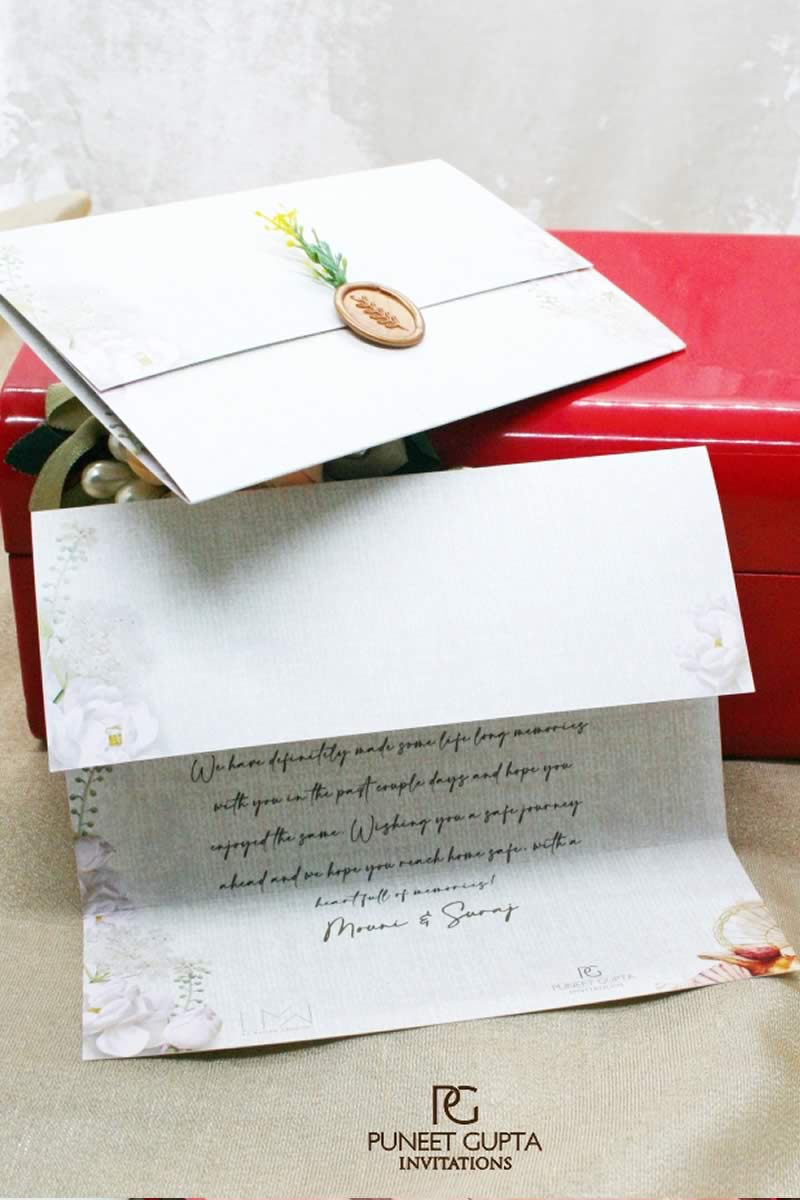 We have definitely made some life long memories
with you in the past couple days and hope you
enjoyed the same. Wishing you a safe journey
ahead and we hope you reach home safe, with a
heart full of memories!
Mouni & Suraj
PG
PUNEET GUPTA
INVITATIONS
PG
PUNEET GUPTA
INVITATIONS